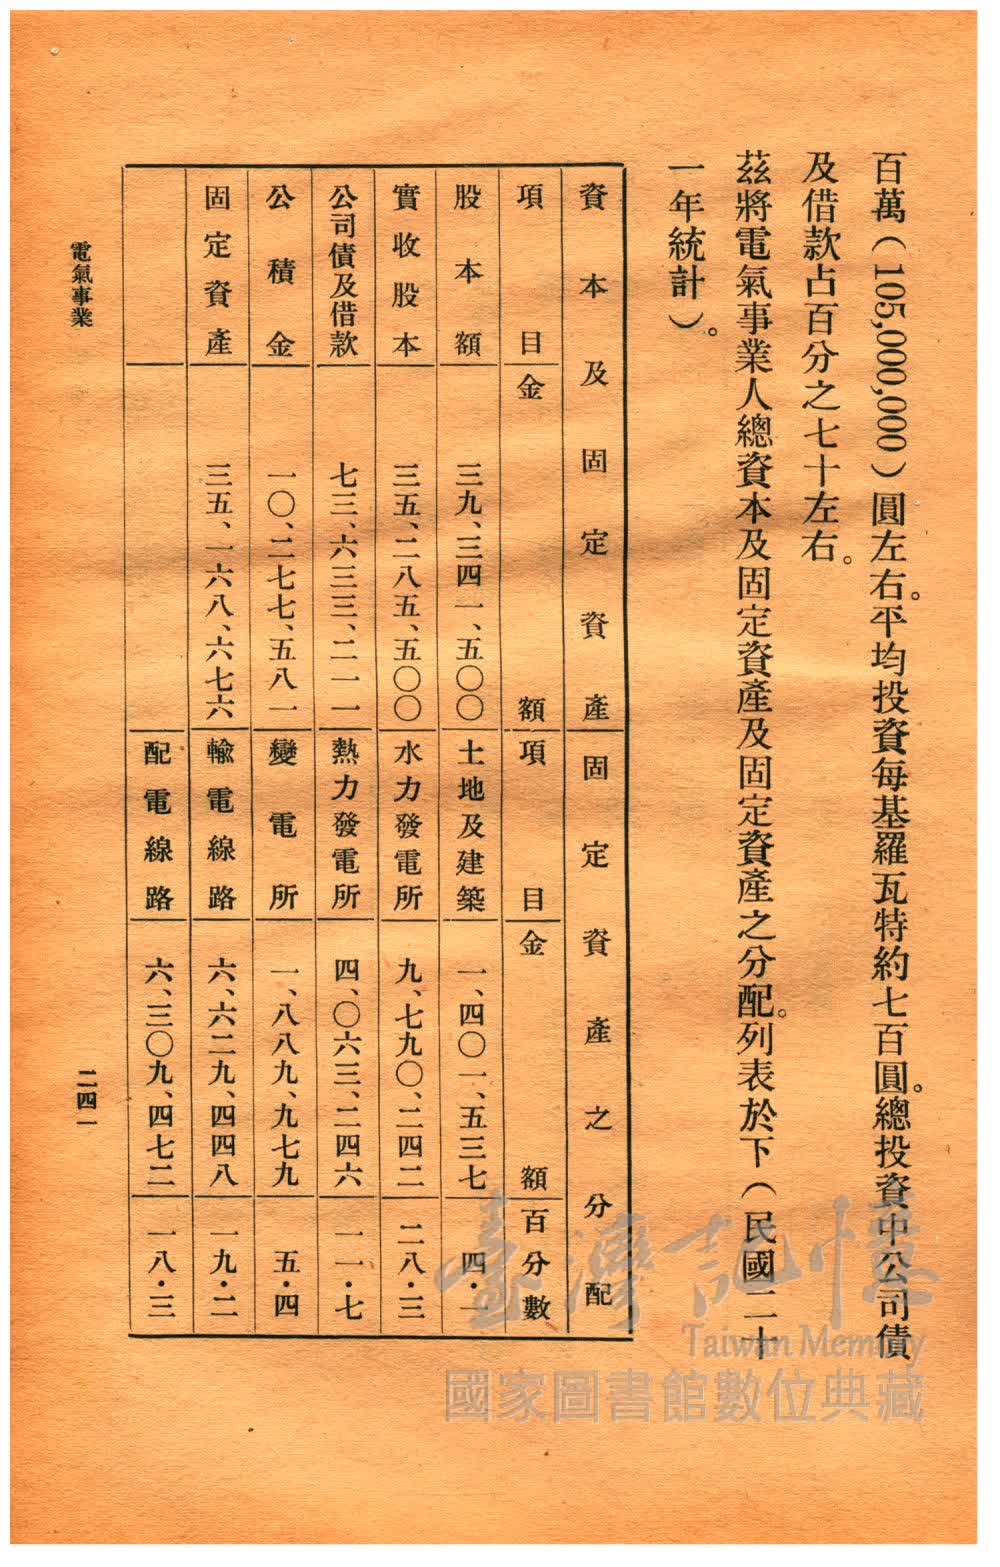 百萬（105,000,000）圓左右。平均投資每基羅瓦特約七百圓。總投資中公司債
及借款占百分之七十左右。
茲將電氣事業人總資本及固定資產及固定資產之分配。列表於下（民國二十
一年統計）。
資本及固定資產 固定資產之分配
項目 金額 項目 金額 百分數
股本額 三九、三四一、五〇〇 土地及建築 一、四〇一、五三七 四・一
實收股本 三五、二八五、五〇〇 水力發電所 九、七九〇、二四二 二八・三
公司債及借款 七三、六三三、二一一 熱力發電所 四、〇六三、二四六 一一・七
公積金 一〇、二七七、五八一 變電所 一、八八九、九七九 五・四
固定資產 三五、一六八、六七六 輸電線路 六、六二九、四四八 一九・二
配電線路 六、三〇九、四七二 一八・三
電氣事業
二四一
臺灣記憶
Taiwan Memory
國家圖書館數位典藏